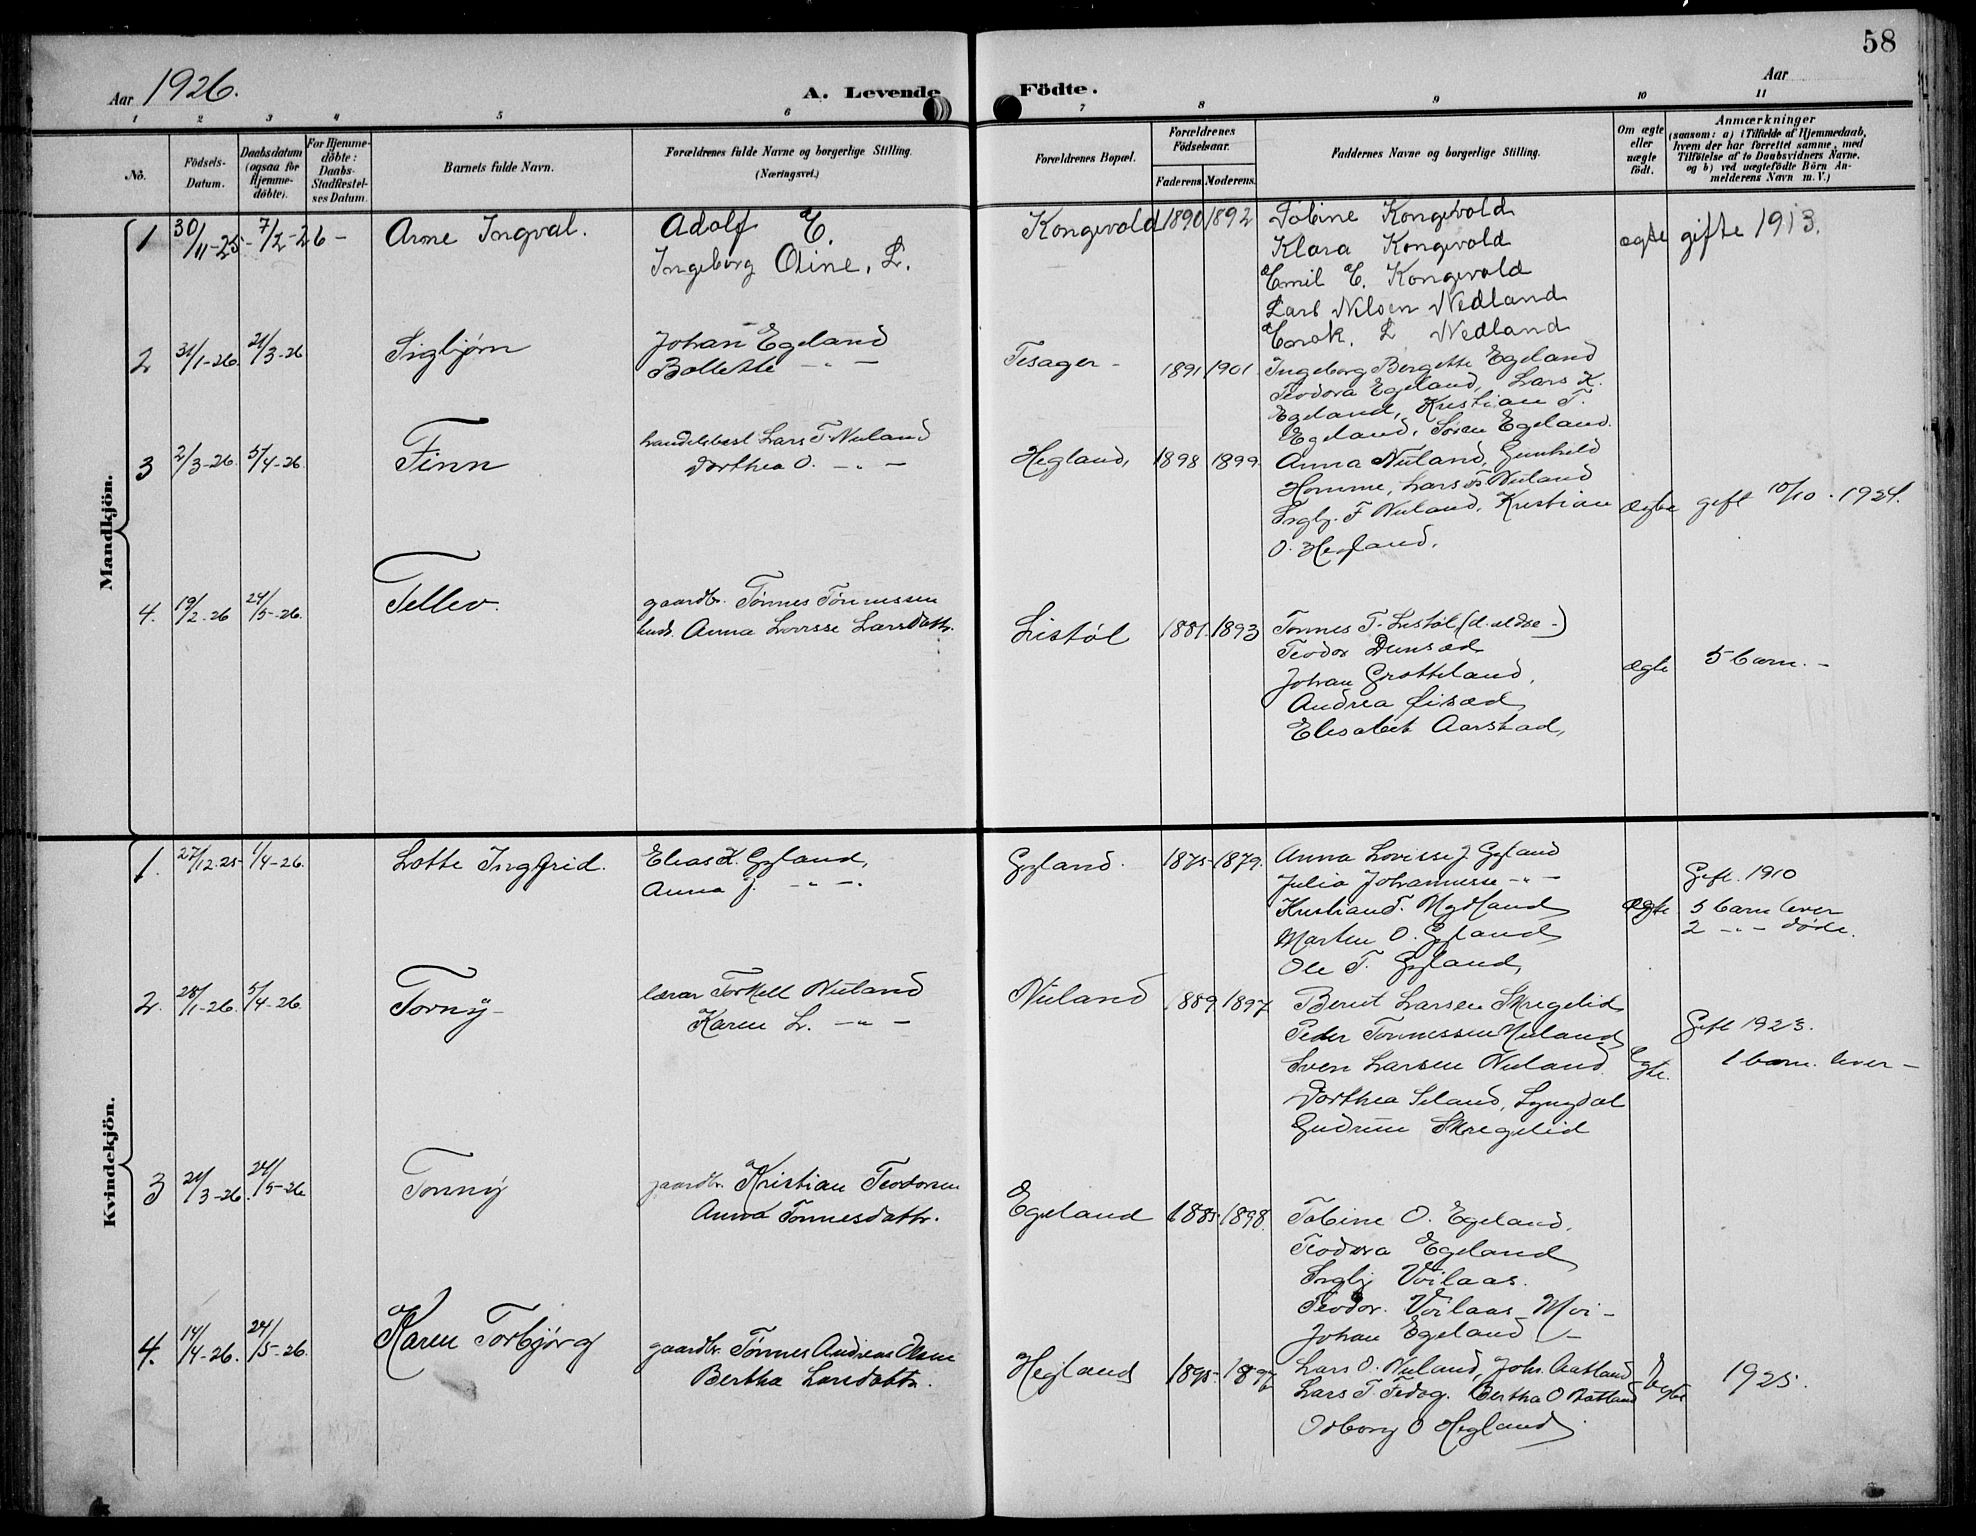 58
Aar 1926.
A. Levende Födte.
Aar
1 2 3 4 5 6 7 8 9 10 11
No.
Födsels-
Datum.
Daabsdatum
(ogsaa for
Hjemme-
döbte).
For Hjemme-
döbte:
Daabs-
Stadfæstel-
ses Datum.
Barnets fulde Navn.
Forældrenes fulde Navne og borgerlige Stilling.
(Næringsvei.)
Forældrenes Bopæl.
Forældrenes
Födselsaar.
Faderens. Moderens.
Faddernes Navne og borgerlige Stilling.
Om ægte
eller
uægte
födt.
Anmærkninger
(saasom: a) i Tilfælde af Hjemmedaab,
hvem der har forrettet samme, med
Tilföielse af to Daabsvidners Navne,
og b) ved uægtefödte Börn An-
melderens Navn m. V.)
Mandkjön.
1 30/11-25- 7/2-26- Arne Ingval. Adolf E. Kongevold 1890 1892 Tobine Kongevold
Ingeborg Oline, L. Klara Kongevold ægte gifte 1913.
Emil E. Kongevold
Lars Nilsen Nedland
Enok. L Nedland
2 31/1-26. 21/3-26 Sigbjørn Johan Egeland Tesager- 1891 1901 Ingeborg Bergette Egeland
Bollette - " - Teodora Egeland, Lars K.
Egeland, Kristian T.
Egeland, Søren Egeland.
3 2/3-26. 5/4-26. Finn handelsbest Lars T. Nuland Hegland, 1898 1899. Anna Nuland, Gunhild
Dorthea O. - " - Homme, Lars Nuland
F Nuland, Kristian ægte gift 10/10. 1924.
O. Hegland.
4. 19/2-26 24/5-26. Tellev. gaardbr. Tønnes Tønnessen Listøl 1881. 1893 Tønnes T. Listøl (d. eldre -)
hust. Anna Lovisse Larsdattr. Teodor Dunsæd
Johan Grøtteland, ægte 5 barn. -
Andrea Øisæd,
Elisabet Aarstad,
Kvindekjön.
1. 27/12-25- 1/4-26. Lotte Inggrid. Elias K. Gyland, Gyland. 1875- 1879. Anna Lovisse J. Gyland
Anna J. - " - Julia Johannesse - " - Gift. 1910
Kristian T. Nydland ægte 5 barn lever
Marten O. Gyland 2 - " - døde.
Ole T. Gyland,
2. 28/1-26. 5/4-26. Torny- lærer Torkell Nuland Nuland 1889 1897 Berut Larsen Skregelid
Karen L. - " - Peder Tønnessen Nuland Gift 1923.
Sven Larsen Nuland. Ægte. 1 barn. lever -
Dorthea Seland, Lyngdal
Gudrun Skregelid
3 21/3-26. 24/5-26 Tonny gaardbr. Kristian Teodorsen Egeland 1885- 1898. Tobine O. Egeland,
Anna Tønnesdattr. Teodora Egeland
Voilaas.
Teodor. Voilaas Moi-
Johan Egeland -
4. 14/4-26. 24/5-26. Karen Torbjørg gaardbr. Tønnes Andreas Olsen Hegland 1895- 1897 Lars O. Nuland, Johs. Aatland
Bertha Larsdattr. Lars T. Tedog. Bertha O Aatland Ægte 1925.
Osborg O Hegland